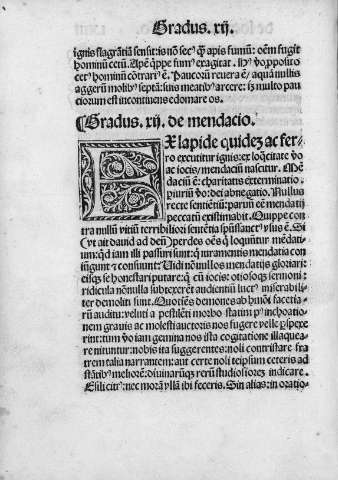 Gradus. xij.
ignis flagrãtiã sensit: is nõ sec⁹ q̃ apis fumũ: oẽm fugit
hominũ cetũ. Apẽ q̃ppe fum⁹ exagitat. Hũc ꝟo ꝓposito
cet⁹ hominũ cõtrari⁹ ẽ. Paucoꝝ reuera ẽ aquã nullis
aggerũ molib⁹ septã: suis meatib⁹ arcere: iz multo pau
cioꝝ est incõtinens edomare os.
¶ Gradus. xij. de mendacio.
EX lapide quidẽ ac fer-
ro excutitur ignis: ex loq̃citate ꝟo
ac iocis mendaciũ nascitur. Mẽ
daciũ ẽ: charitatis exterminatio.
Piuriũ ꝟo: dei abnegatio. Nullus
recte sentiẽtiũ: paruũ eẽ mendatij
peccatũ existimabit. Quippe con
tra nullũ vitiũ terribiliori sentẽtia spũssanct⁹ vsus ẽ. Si
vt ait dauid ad deũ Perdes oẽs q̃ loquũtur mẽdati-
um: qd iam illi passuri sunt: q̃ iuramentis mendatia con
iũgunt & consuunt? Vidi nõnullos mendatijs gloriari:
eisq̃ se honestari putare: q̃ cũ iocis: otiosisq̃ sermoni:
ridicula nõnulla subtexerẽt audientiũ luct⁹ miserabili-
ter demoliti sunt. Quotiẽs demones ab hmõi facetia-
rũ auditu: veluti a pestilẽti morbo statim ꝑ inchoatio-
nem grauis ac molesti auctoris nos fugere velle ꝑspexe
rint: tum ꝟo iam gemina nos ista cogitatione illaquea-
re nituntur: nobis ita suggerentes: noli contristare fra
trem talia narrantem: aut certe noli teipsum ceteris ad
stãtib⁹ meliorẽ: diuinarũq̃ rerũ studiosiorẽ indicare.
Exilicit⁹: nec morã yllã ibi feceris. Sin alias: in oratio-